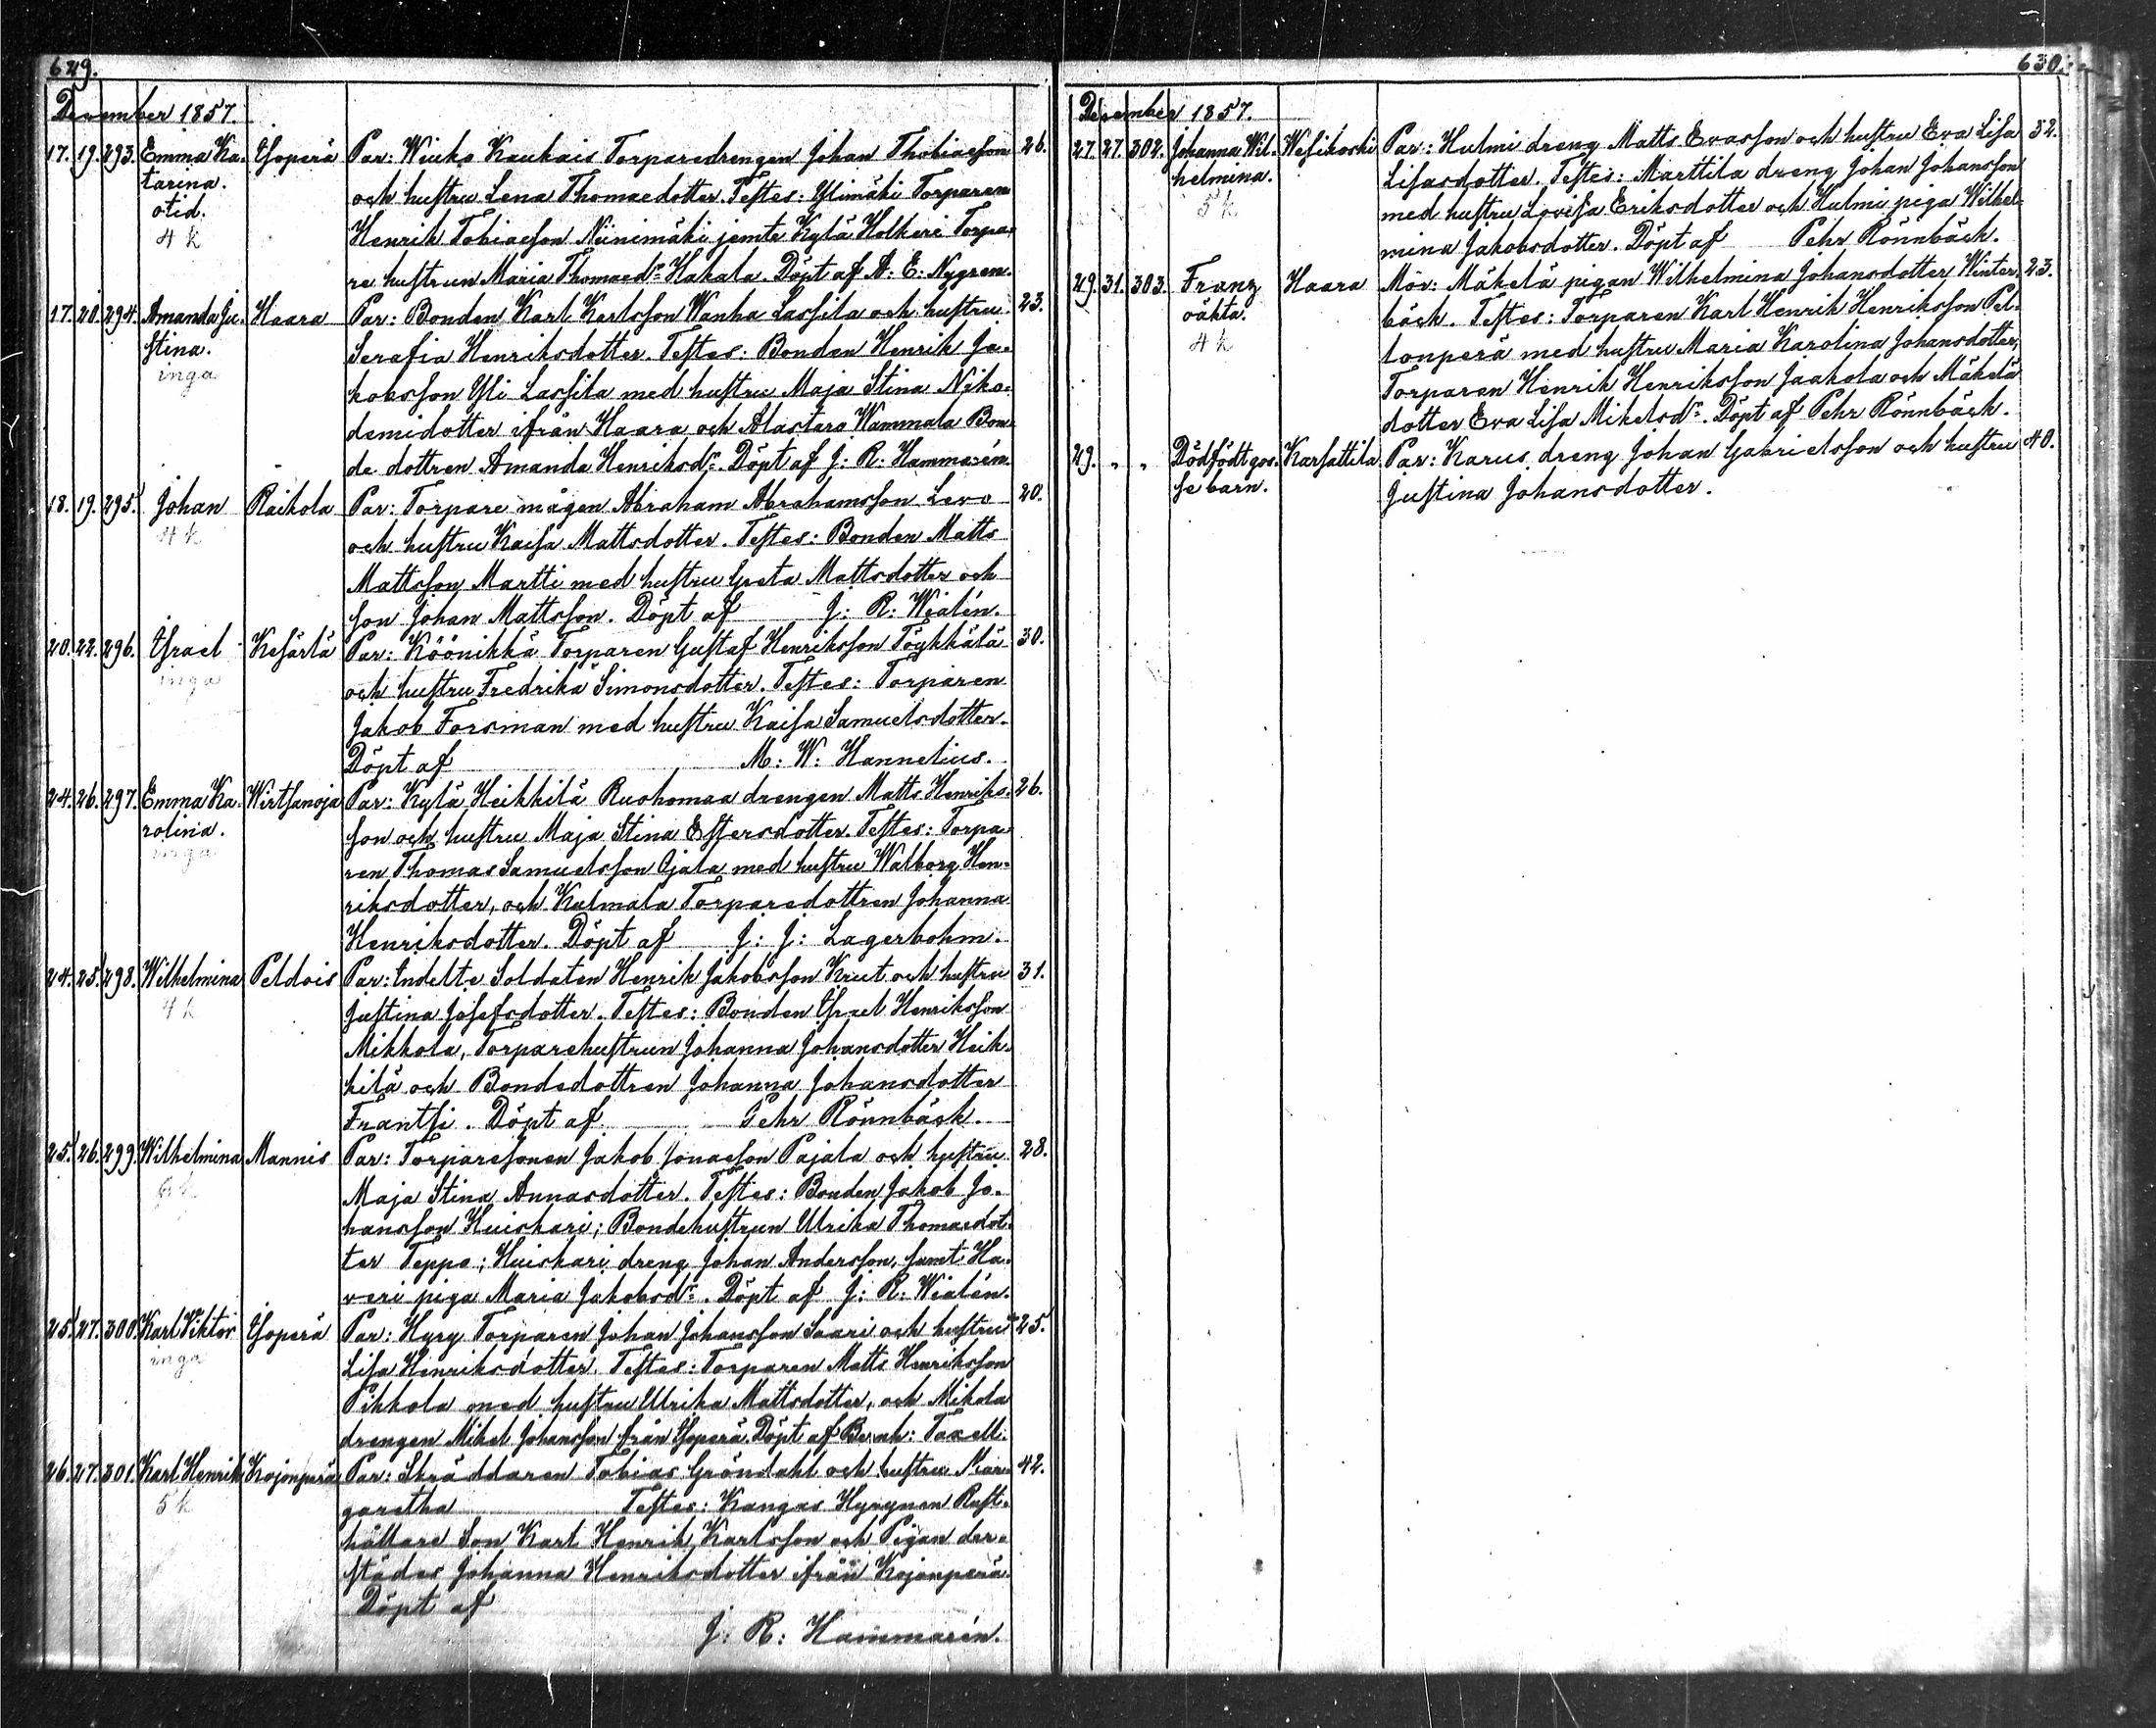 629.
December 1857.
17. 19. 293. Emma Ka- Ylopera Par: Wiuko Kaukais Torparedrengen Johan Thobiasson 26.
tarina. och hustru Lena Thomaedotter. Testes: Ylimäki Torparen
otid. Henrik Tobiasson Niinimäki jemte Kylä Holkeri Torpa-
4 k re hustrun Maria Thomaedr Hakala. Döpt af A: E: Nygren.
17. 20. 294. Amanda Ju- Haara Par: Bonden Karl Karlsson Wanha Lassila och hustru 23.
stina. Serafia Henriksdotter. Testes: Bonden Henrik Ja-
inga kobsson Yli Lassila med hustru Maja Stina Niko-
demidotter ifrån Haara och Alastaro Wammala Bon-
de dottren Amanda Henriksdr. Döpt af J: R: Hammarén.
18. 19. 295. Johan Raikola Par: Torpare mågen Abraham Abrahamsson Levo 20.
4 k och hustru Kaisa Mattsdotter. Testes: Bonden Matts
Mattsson Martti med hustru Greta Mattsdotter och
son Johan Mattsson. Döpt af J: R: Wialén.
20. 22. 296. Israel Kesärlä Par: Köönikkä Torparen Gustaf Henriksson Töykkälä 30.
inga och hustru Fredrika Simonsdotter. Testes: Torparen
Jakob Forsman med hustru Kaisa Samuelsdotter.
Döpt af M: W: Hannelius.
24. 26. 297. Emma Ka- Wirtsanoja Par: Kylä Heikkilä Ruohomaa drengen Matts Henriks- 26.
rolina. son och hustru Maja Stina Estersdotter. Testes: Torpa-
inga ren Thomas Samuelsson Ojala med hustru Walborg Hen-
riksdotter, och Kulmala Torparedottren Johanna
Henriksdotter. Döpt af J: J: Lagerbohm.
24. 25. 298. Wilhelmina Peldois Par: Indelte Soldaten Henrik Jakobsson Krut och hustru 31.
4 k Justina Josefsdotter. Testes: Bonden Israel Henriksson
Mikkola, Torparehustrun Johanna Johansdotter Heik-
kilä och Bondedottren Johanna Johansdotter
Frantsi. Döpt af Pehr Rönnbäck.
25. 26. 299. Wilhelmina Mannis Par: Torparesonen Jakob Jonasson Pajala och hustru 28.
Maja Stina Annasdotter. Testes: Bonden Jakob Jo-
hansson Huiskari; Bondehustrun Ulrika Thomaedot-
ter Teppo; Huiskari dreng Johan Andersson, samt Ha-
veri piga Maria Jakobsdr. Döpt af J: R: Wialén.
25. 27. 300. Karl Viktor Ylopera Par: Hyry Torparen Johan Johansson Saari och hustru 25.
inga Lisa Henriksdotter. Testes: Torparen Matts Henriksson
Pikkola med hustru Ulrika Mattsdotter, och Mikola
drengen Mikel Johansson från Ylopera. Döpt af Bernh: Taxell.
26. 27. 301. Karl Henrik Kojonperä Par: Skräddaren Tobias Gröndahl och hustru Mar- 42.
5 k garetha Testes: Kangas Hyrynen Rust-
hållare Son Karl Henrik Karlsson och Pigan der-
städes Johanna Henriksdotter ifrån Kojonperä.
Döpt af
J: R: Hammarén.
630.
December 1857.
27. 27. 302. Johanna Wil- Wesikoski Par: Hulmi dreng Matts Evasson och hustru Eva Lisa 32.
helmina. Lisasdotter. Testes: Marttila dreng Johan Johansson
5 k med hustru Lovisa Eriksdotter och Hulmi piga Wilhel-
mina Jakobsdotter. Döpt af Pehr Rönnbäck.
29. 31. 303. Franz Haara Mör: Mäkelä pigan Wilhelmina Johansdotter Winter- 23.
oäkta. bäck. Testes: Torparen Karl Henrik Henriksson Pel-
4 k tonperä med hustru Maria Karolina Johansdotter,
Torparen Henrik Henriksson Jaakola och Mäkelä
dotter Eva Lisa Mikelsdr. Döpt af Pehr Rönnbäck.
29. " " Dödfödt gos- Karhattila Par: Karus dreng Johan Gabrielsson och hustru 40.
se barn. Justina Johansdotter.